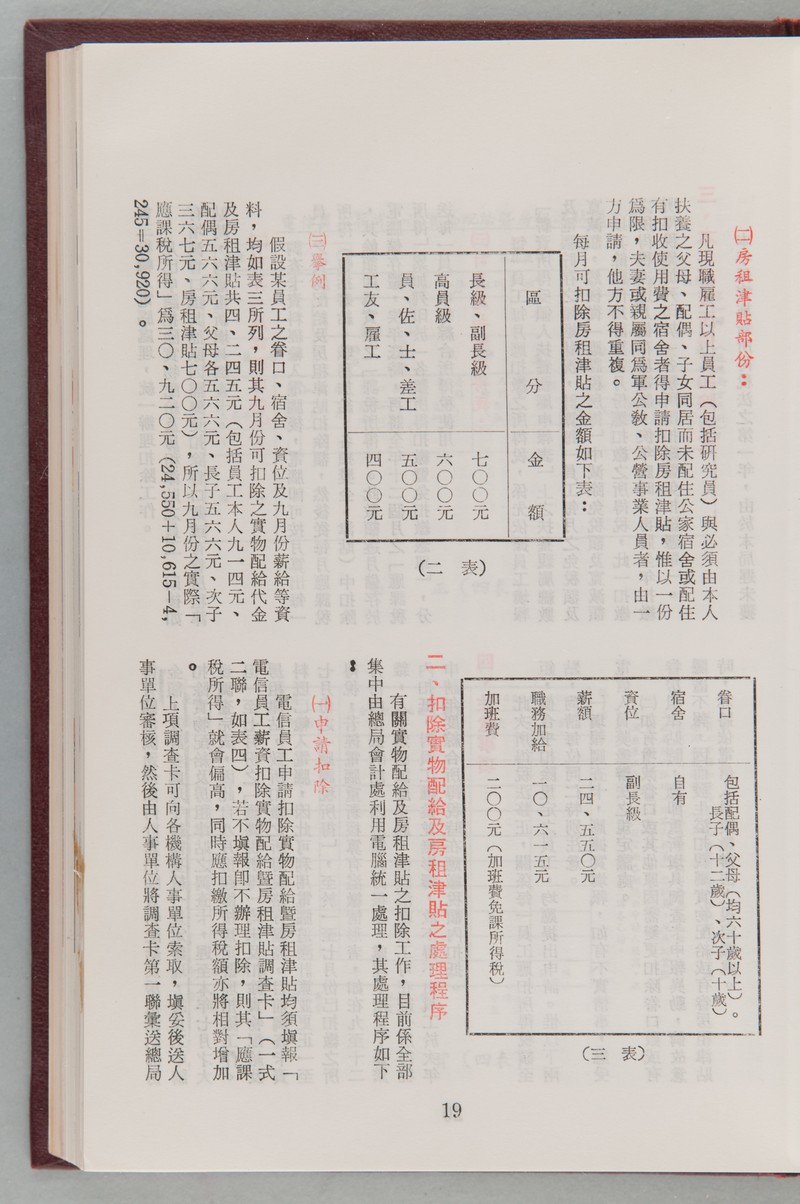 ㈡房租津貼部份：
凡現職雇工以上員工（包括研究員）與必須由本人
扶養之父母、配偶、子女同居而未配住公家宿舍或配住
有扣收使用費之宿舍者得申請扣除房租津貼，惟以一份
爲限，夫妻或親屬同爲軍公教、公營事業人員者，由一
方申請，他方不得重複。
每月可扣除房租津貼之金額如下表：
區分　金額
長級、副長級　七〇〇元
高員級　六〇〇元
員、佐、士、差工　五〇〇元
工友、雇工　四〇〇元
（表二）
㈢舉例
假設某員工之眷口、宿舍、資位及九月份薪給等資
料，均如表三所列，則其九月份可扣除之實物配給代金
及房租津貼共四、二四五元（包括員工本人九一四元、
配偶五六六元、父母各五六六元、長子五六六元、次子
三六七元、房租津貼七〇〇元），所以九月份之實際「
應課稅所得」爲三〇、九二〇元（24,550＋10,615－4,
245＝30,920）。
眷口　包括配偶、父母（均六十歲以上）。
長子（十二歲）、次子（十歲）
宿舍　自有
資位　副長級
薪額　二四、五五〇元
職務加給　一〇、六一五元
加班費　二〇〇元（加班費免課所得稅）
（表三）
二、扣除實物配給及房租津貼之處理程序
有關實物配給及房租津貼之扣除工作，目前係全部
集中由總局會計處利用電腦統一處理，其處理程序如下
：
㈠申請扣除
電信員工申請扣除實物配給暨房租津貼均須塡報「
電信員工薪資扣除實物配給暨房租津貼調查卡」（一式
二聯，如表四），若不塡報卽不辦理扣除，則其「應課
稅所得」就會偏高，同時應扣繳所得稅額亦將相對增加
。
上項調查卡可向各機構人事單位索取，塡妥後送人
事單位審核，然後由人事單位將調查卡第一聯彙送總局
19